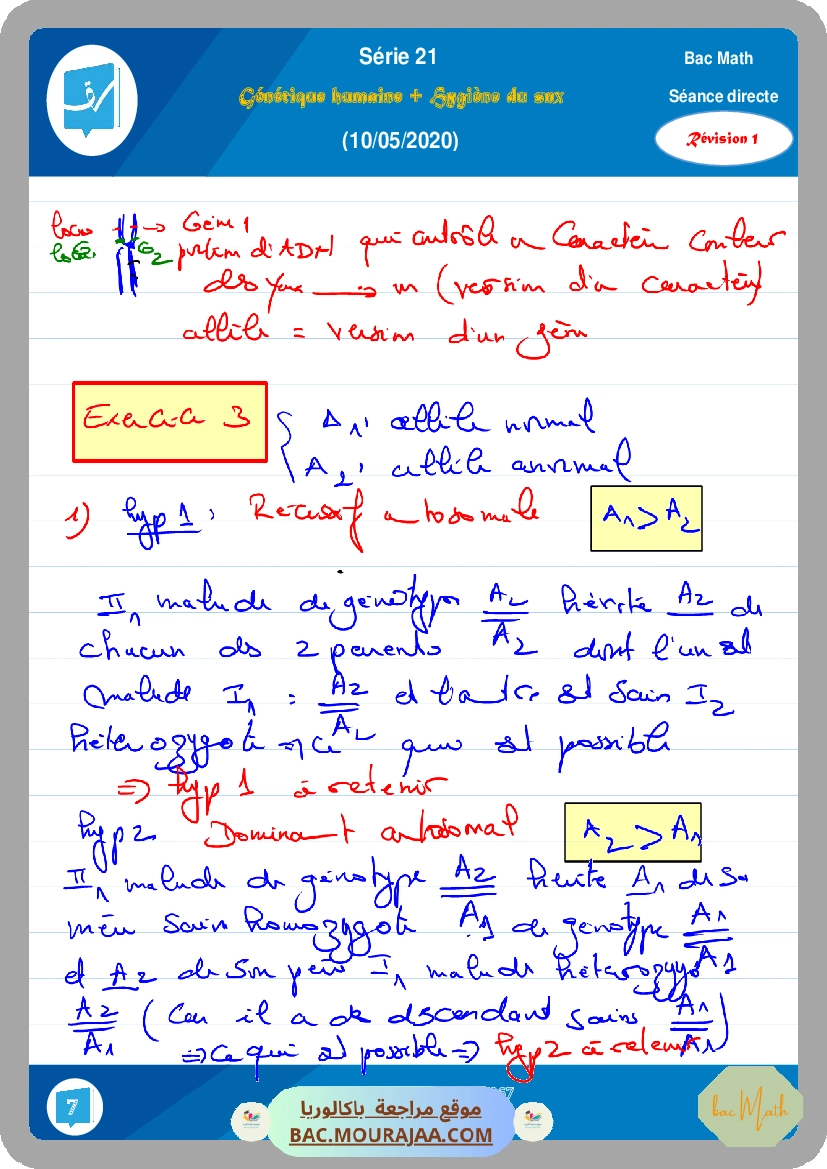 Série 21
Bac Math
Génétique humaine + Hygiène du snx
Séance directe
(10/05/2020)
Révision 1
locus → Gène 1
G2 portion d'ADN qui contrôle un Caractère Couleur
des yeux → un (version d'un caractère)
allèle = version d'un gène
Exercice 3
A1: allèle normal
A2: allèle anormal
1) hyp 1: Récessif autosomale
A1 > A2
II1 malade de génotype A2/A2 hérite A2 de
chacun des 2 parents dont l'un est
malade I1 = A2/A2 et l'autre est sain I2
hétérozygote → ce que est possible
⇒ hyp 1 à retenir
hyp 2 Dominant autosomal
A2 > A1
II1 malade de génotype A2/A1 hérite A1 de sa
mère saine homozygote de génotype A1/A1
et A2 de son père I1 malade hétérozygo
A2/A1 (Car il a des descendant sains A1/A1)
⇒ ce qui est possible ⇒ hyp 2 à retenir
7
موقع مراجعة باكالوريا
BAC.MOURAJAA.COM
bac Math